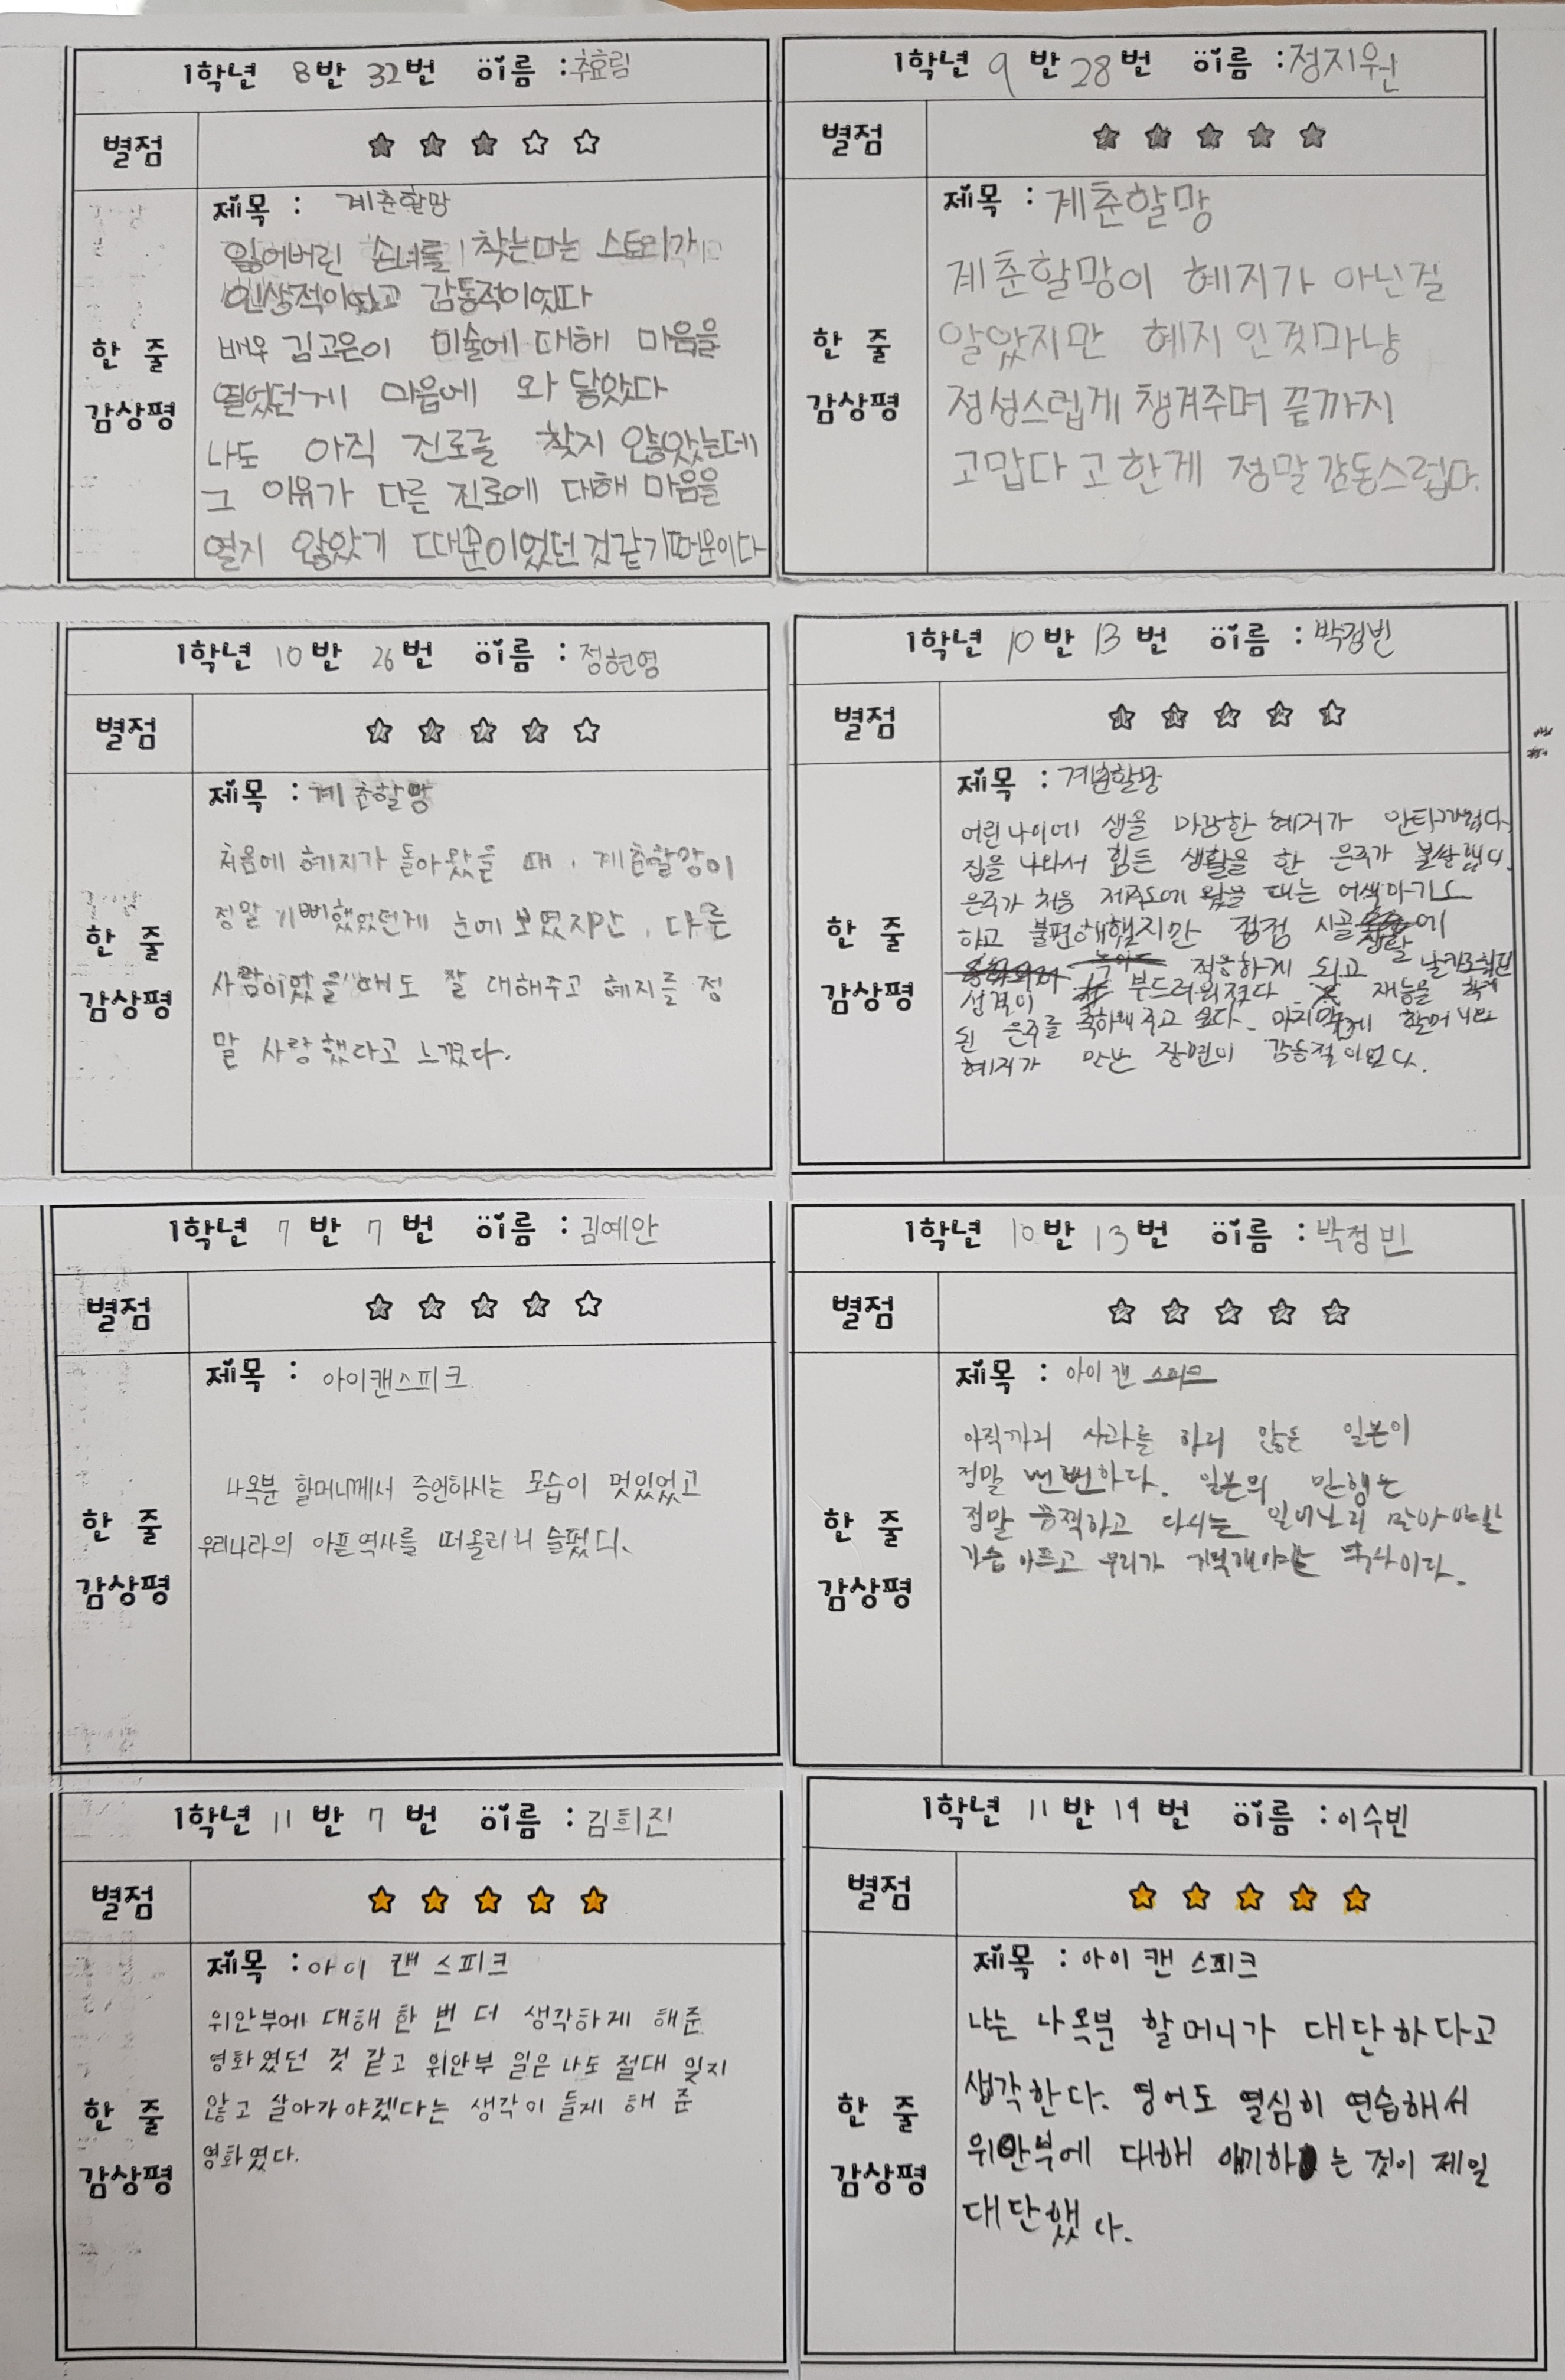 1학년 8반 32번 이름 : 추효림
별점 ★ ★ ★ ☆ ☆
제목 : 계춘할망
잃어버린 손녀를 찾는다는 스토리가
인상적이었고 감동적이었다
배우 김고은이 미술에 대해 마음을
열었던게 마음에 와 닿았다
나도 아직 진로를 찾지 않았는데
그 이유가 다른 진로에 대해 마음을
열지 않았기 때문이었던 것같기때문이다
한 줄
감상평
1학년 9반 28번 이름 : 정지원
별점 ★ ★ ★ ★ ★
제목 : 계춘할망
계춘할망이 혜지가 아닌걸
알았지만 혜지인것마냥
정성스럽게 챙겨주며 끝까지
고맙다고한게 정말감동스럽다.
한 줄
감상평
1학년 10반 26번 이름 : 정현영
별점 ★ ★ ★ ★ ☆
제목 : 계춘할망
처음에 혜지가 돌아왔을 때, 계춘할망이
정말 기뻐했었던게 눈에 보였지만, 다른
사람이었을 때도 잘 대해주고 혜지를 정
말 사랑했다고 느꼈다.
한 줄
감상평
1학년 10반 13번 이름 : 박정빈
별점 ★ ★ ★ ★ ☆
제목 : 계춘할망
어린나이에 생을 마감한 혜지가 안타까웠다.
집을 나와서 힘든 생활을 한 은주가 불쌍했다.
은주가 처음 제주도에 왔을 때는 어색하기도
하고 불편해했지만 점점 시골생활에
적응하게 되고 날카로웠던
성격이 부드러워졌다. 재능을 찾게
된 은주를 축하해 주고 싶다. 마지막에 할머니와
혜지가 만난 장면이 감동적이었다.
한 줄
감상평
1학년 7반 7번 이름 : 김예안
별점 ★ ★ ★ ★ ☆
제목 : 아이캔스피크
나옥분 할머니께서 증언하시는 모습이 멋있었고
우리나라의 아픈역사를 떠올리니 슬펐다.
한 줄
감상평
1학년 10반 13번 이름 : 박정빈
별점 ★ ★ ★ ★ ★
제목 : 아이 캔 스피크
아직까지 사과를 하지 않은 일본이
정말 뻔뻔하다. 일본의 만행은
정말 끔찍하고 다시는 일어나지 말아야할
가슴 아프고 우리가 기억해야할 역사이다.
한 줄
감상평
1학년 11반 7번 이름 : 김희진
별점 ★ ★ ★ ★ ★
제목 : 아이 캔 스피크
위안부에 대해 한 번 더 생각하게 해준
영화였던 것 같고 위안부 일은 나도 절대 잊지
않고 살아가야겠다는 생각이 들게 해 준
영화였다.
한 줄
감상평
1학년 11반 19번 이름 : 이수빈
별점 ★ ★ ★ ★ ★
제목 : 아이 캔 스피크
나는 나옥분 할머니가 대단하다고
생각한다. 영어도 열심히 연습해서
위안부에 대해 얘기하는 것이 제일
대단했다.
한 줄
감상평